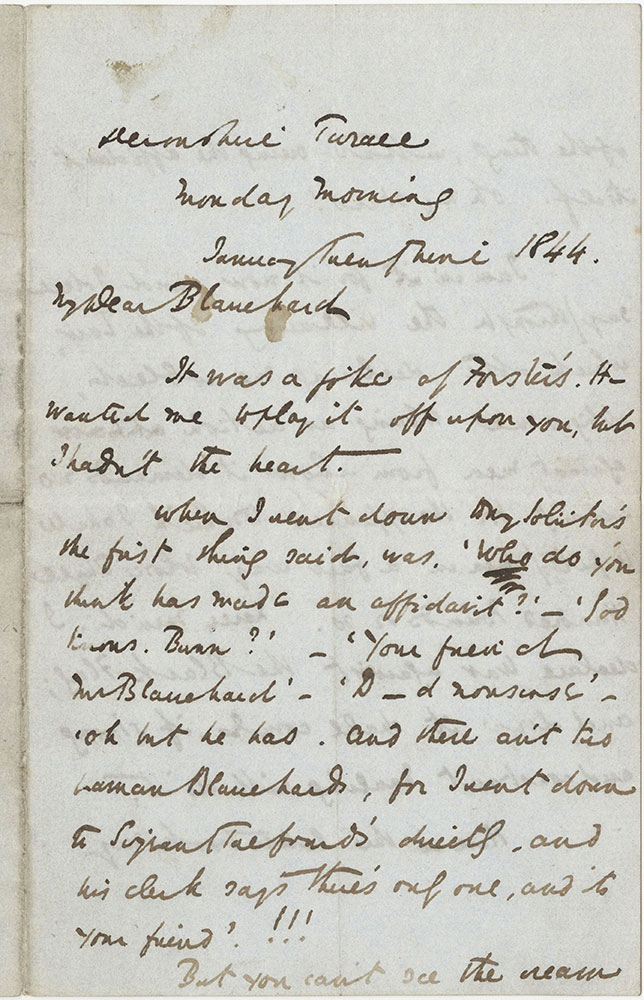 Devonshire Terrace
Monday Morning
January Twenty Nine 1844.
My Dear Blanchard
It was a joke of Forster's. He
wanted me to play it off upon you, but
I hadn't the heart.—
When I went down to my Solicitor's
the first thing said, was, 'Who do you
think has made an affidavit?' — 'God
knows. Bunn?' — 'Your friend
Mr Blanchard' — 'D—d nonsense' —
'oh but he has. And there ain't two
Laman Blanchards, for I went down
to Serjeant Talfourd's directly, and
his clerk says there's only one, and it's
your friend'. !!!
But you can't see the cream